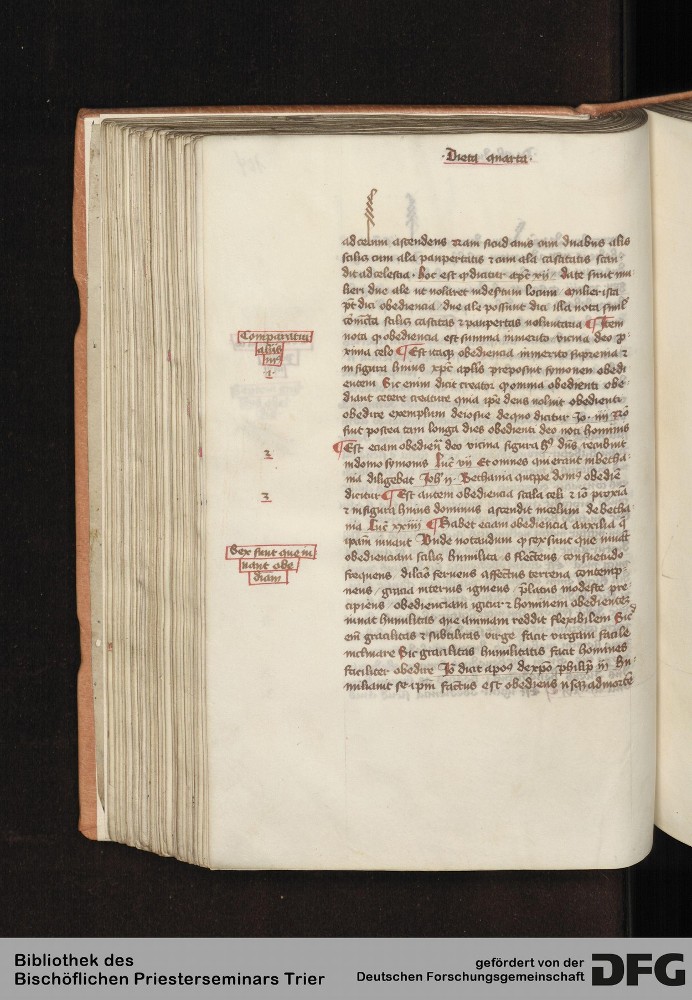 Dieta quarta
ad celum ascendens nam sicud auis cum duabus alis
scilicet cum ala paupertatis et cum ala castitatis scan
dit ad celestia hoc est qd dicitur apc xij date sunt mu
lieri due ale ut uolaret in desertum locum mulier ista
pt dici obediencia due ale possunt dici illa uota simul
scilicet castitas et paupertas uoluntaria Item
nota q obediencia est summa in merito vicina deo p
xima celo Est itaq obediencia in merito suprema et
in figura huius xpc aplis preposuit symonem obedi
entem Sic enim dicit creator q omnia obedienti obe
diant cetere creature quia ipe deus uoluit obedienti
obedire exemplum de iosue de quo dicitur Jo
fuit postea tam longa dies obedienti deo uoci hominis
Est eciam obediencia deo vicina figura dns
in domo symonis Luc vij Et omnes qui erant in betha
nia diligebat Joh Bethania quippe domus obedie
dicitur Est autem obediencia scala celi et io proxia
et in figura huius dominus ascendit in celum de betha
nia Luc xxiiij Habet eciam obediencia auxilia q
ipam iuuant Unde notandum q sex sunt que iuuat
obedienciam scilicet humilitas flectens consuetudo
frequens dilcio feruens affectus terrena contemp
nens gracia interius igniens platus modeste pre
cipiens obedienciam igitur et hominem obedientem
iuuat humilitas que animam reddit flexibilem Sic
em gracilitas et subtilitas virge facit virgam facile
inclinare Sic gracilitas humilitatis facit homines
faciliter obedire Io dicit apos de xpo philip ij hu
miliauit se ipm factus est obediens usq ad mortem
Comparatur
alis
1
2
3
Sex sunt que iu
uant obe
diam
Bibliothek des
Bischöflichen Priesterseminars Trier
gefördert von der
Deutschen Forschungsgemeinschaft
DFG